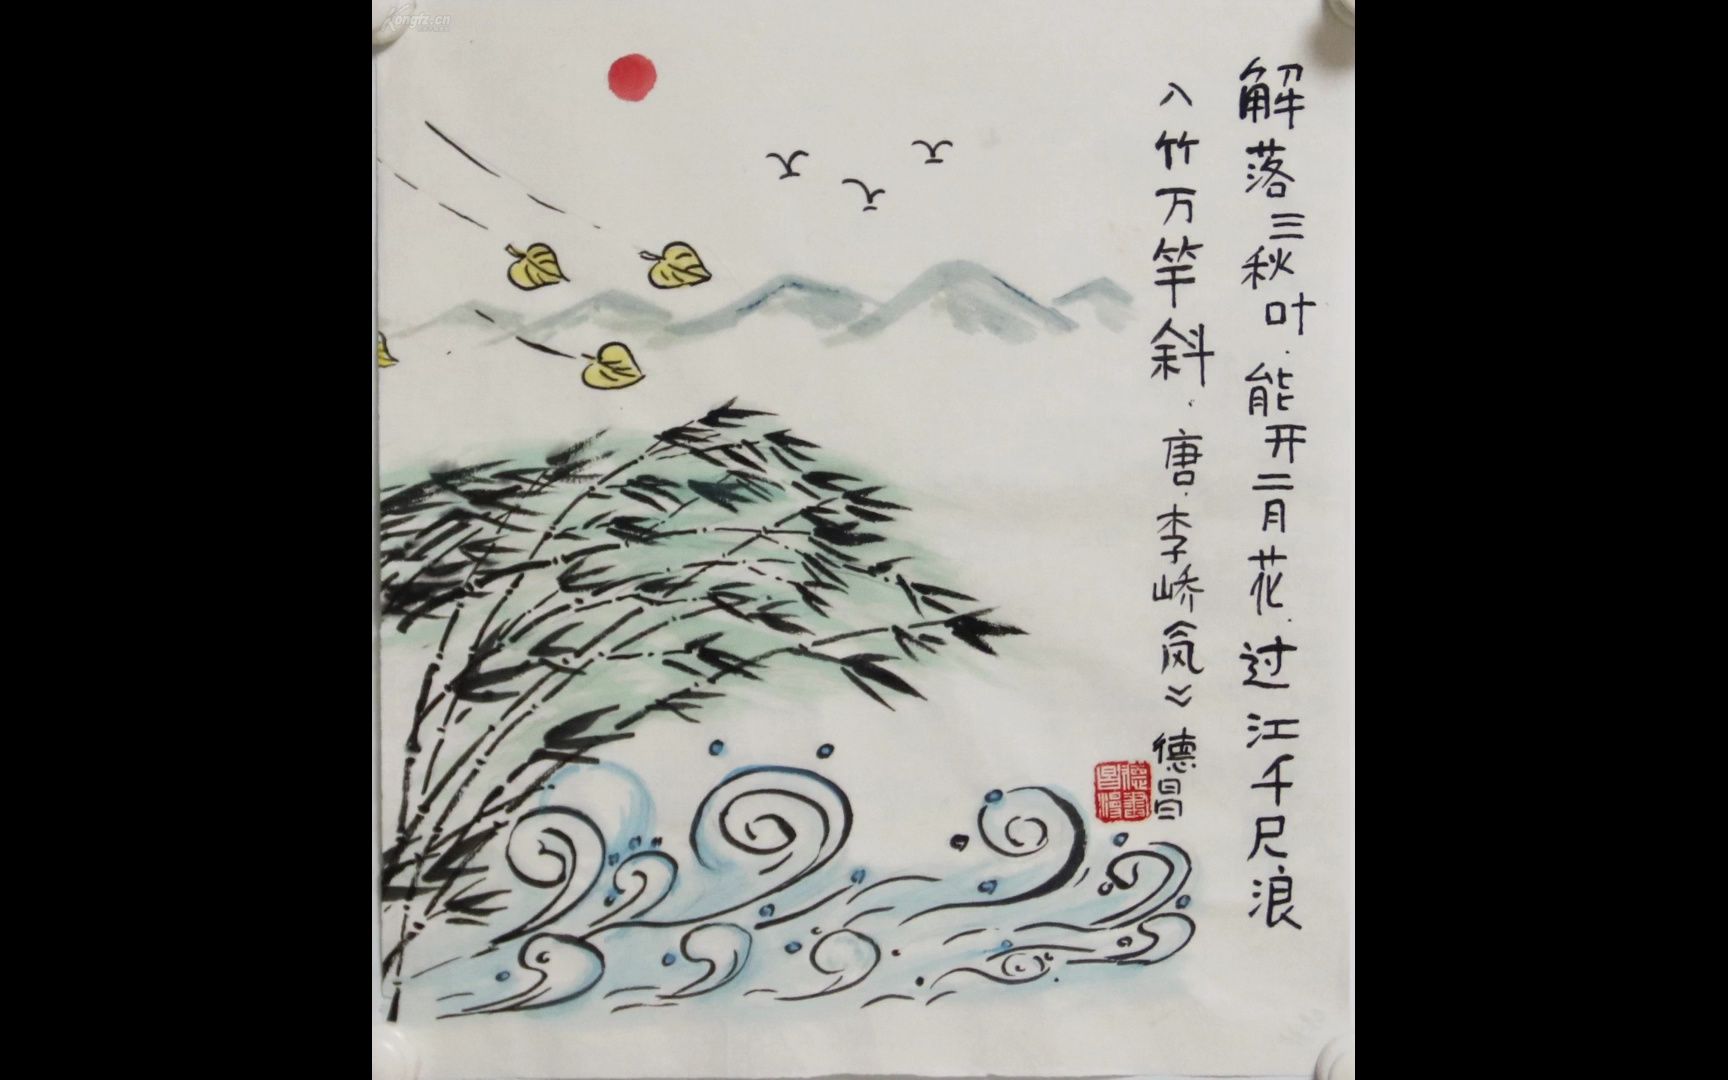 解落三秋叶.能开二月花.过江千尺浪
入竹万竿斜.唐.李峤《风》德昌
Kongfz.cn